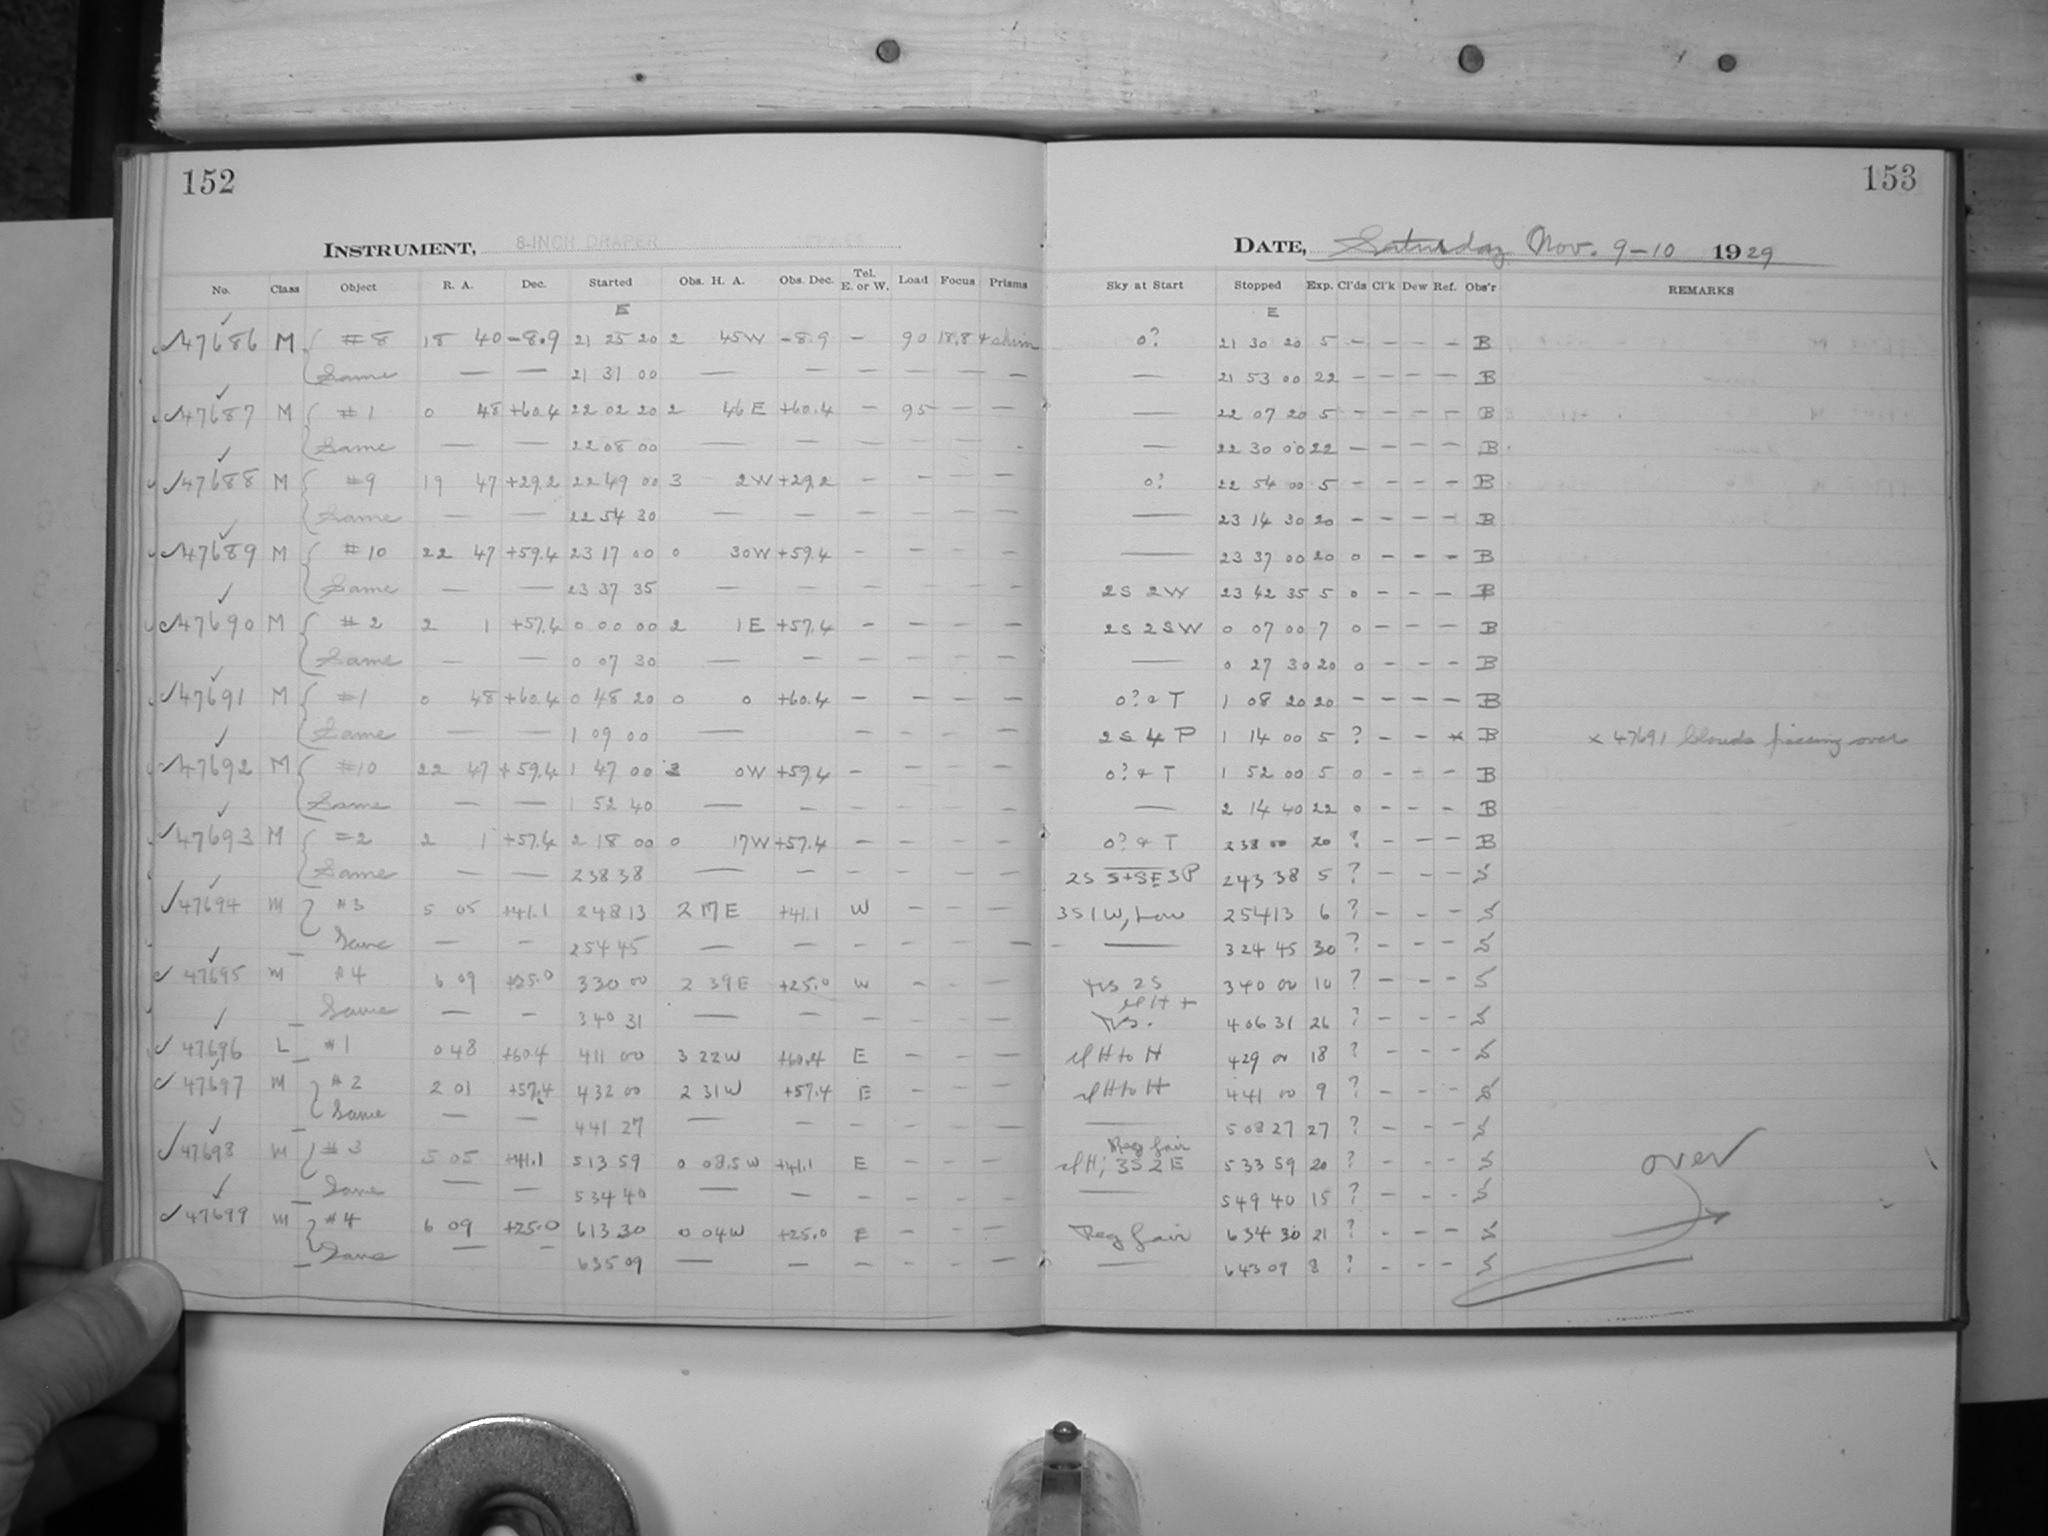 152
153
INSTRUMENT, 8-INCH DRAPER
DATE, Saturday Nov. 9-10 1929
No. Class Object R. A. Dec. Started Obs. H. A. Obs. Dec. Tel. E. or W. Load Focus Prisms Sky at Start Stopped Exp. Cl'ds Cl'k Dew Ref. Obs'r REMARKS
E E
47686 M #8 18 40 -8.9 21 25 20 2 45W -8.9 - 90 18.8 + shim 0? 21 30 20 5 - - - - B
Same — — 21 31 00 — — — — — — — 21 53 00 22 - - - - B
47687 M #1 0 48 +60.4 22 02 20 2 46E +60.4 - 95 - - — 22 07 20 5 - - - - B
Same — — 22 08 00 — — — — — - — 22 30 00 22 - - - - B
47688 M #9 19 47 +29.2 22 49 00 3 2W +29.2 - - - - 0? 22 54 00 5 - - - - B
Same — — 22 54 30 — — — - - — — 23 14 30 20 - - - - B
47689 M #10 22 47 +59.4 23 17 00 0 30W +59.4 - - - - — 23 37 00 20 0 - - - B
Same — — 23 37 35 — — — - - — 2S 2W 23 42 35 5 0 - - - B
47690 M #2 2 1 +57.4 0 00 00 2 1E +57.4 - - - - 2S 2SW 0 07 00 7 0 - - - B
Same — — 0 07 30 — — — - - — — 0 27 30 20 0 - - - B
47691 M #1 0 48 +60.4 0 48 20 0 0 +60.4 - - - - 0? & T 1 08 20 20 - - - - B
Same — — 1 09 00 — — - - - — 2S 4 P 1 14 00 5 ? - - x B x 47691 Clouds passing over
47692 M #10 22 47 +59.4 1 47 00 3 0W +59.4 - - - - 0? & T 1 52 00 5 0 - - - B
Same — — 1 52 40 — — - - - — — 2 14 40 22 0 - - - B
47693 M =2 2 1 +57.4 2 18 00 0 17W +57.4 - - - - 0? & T 2 38 00 20 ? - - - B
Same — — 2 38 38 — — - - - — 2S S+SE 3P 2 43 38 5 ? - - - S
47694 M #3 5 05 +41.1 2 48 13 2 17E +41.1 W - - - 3S 1W, Low 2 54 13 6 ? - - - S
Same — - 2 54 45 — — - - - — — 3 24 45 30 ? - - - S
47695 M #4 6 09 +25.0 3 30 00 2 39E +25.0 W - - — 2S 3 40 00 10 ? - - - S
Same — - 3 40 31 — — - - - — 4 06 31 26 ? - - - S
47696 L #1 0 48 +60.4 4 11 00 3 22W +60.4 E - - — H to H 4 29 00 18 ? - - - S
47697 M #2 2 01 +57.4 4 32 00 2 31W +57.4 E - - — H to H 4 41 00 9 ? - - - S
Same — - 4 41 27 — - - - - — — 5 08 27 27 ? - - - S
Reg fair
47698 M #3 5 05 +41.1 5 13 59 0 08.5W +41.1 E - - — H; 3S 2E 5 33 59 20 ? - - - S over
Same — - 5 34 40 — — - - - — — 5 49 40 15 ? - - - S
47699 M #4 6 09 +25.0 6 13 30 0 04W +25.0 E - - — Reg fair 6 34 30 21 ? - - - S
Same — - 6 35 09 — — - - - — — 6 43 09 8 ? - - - S